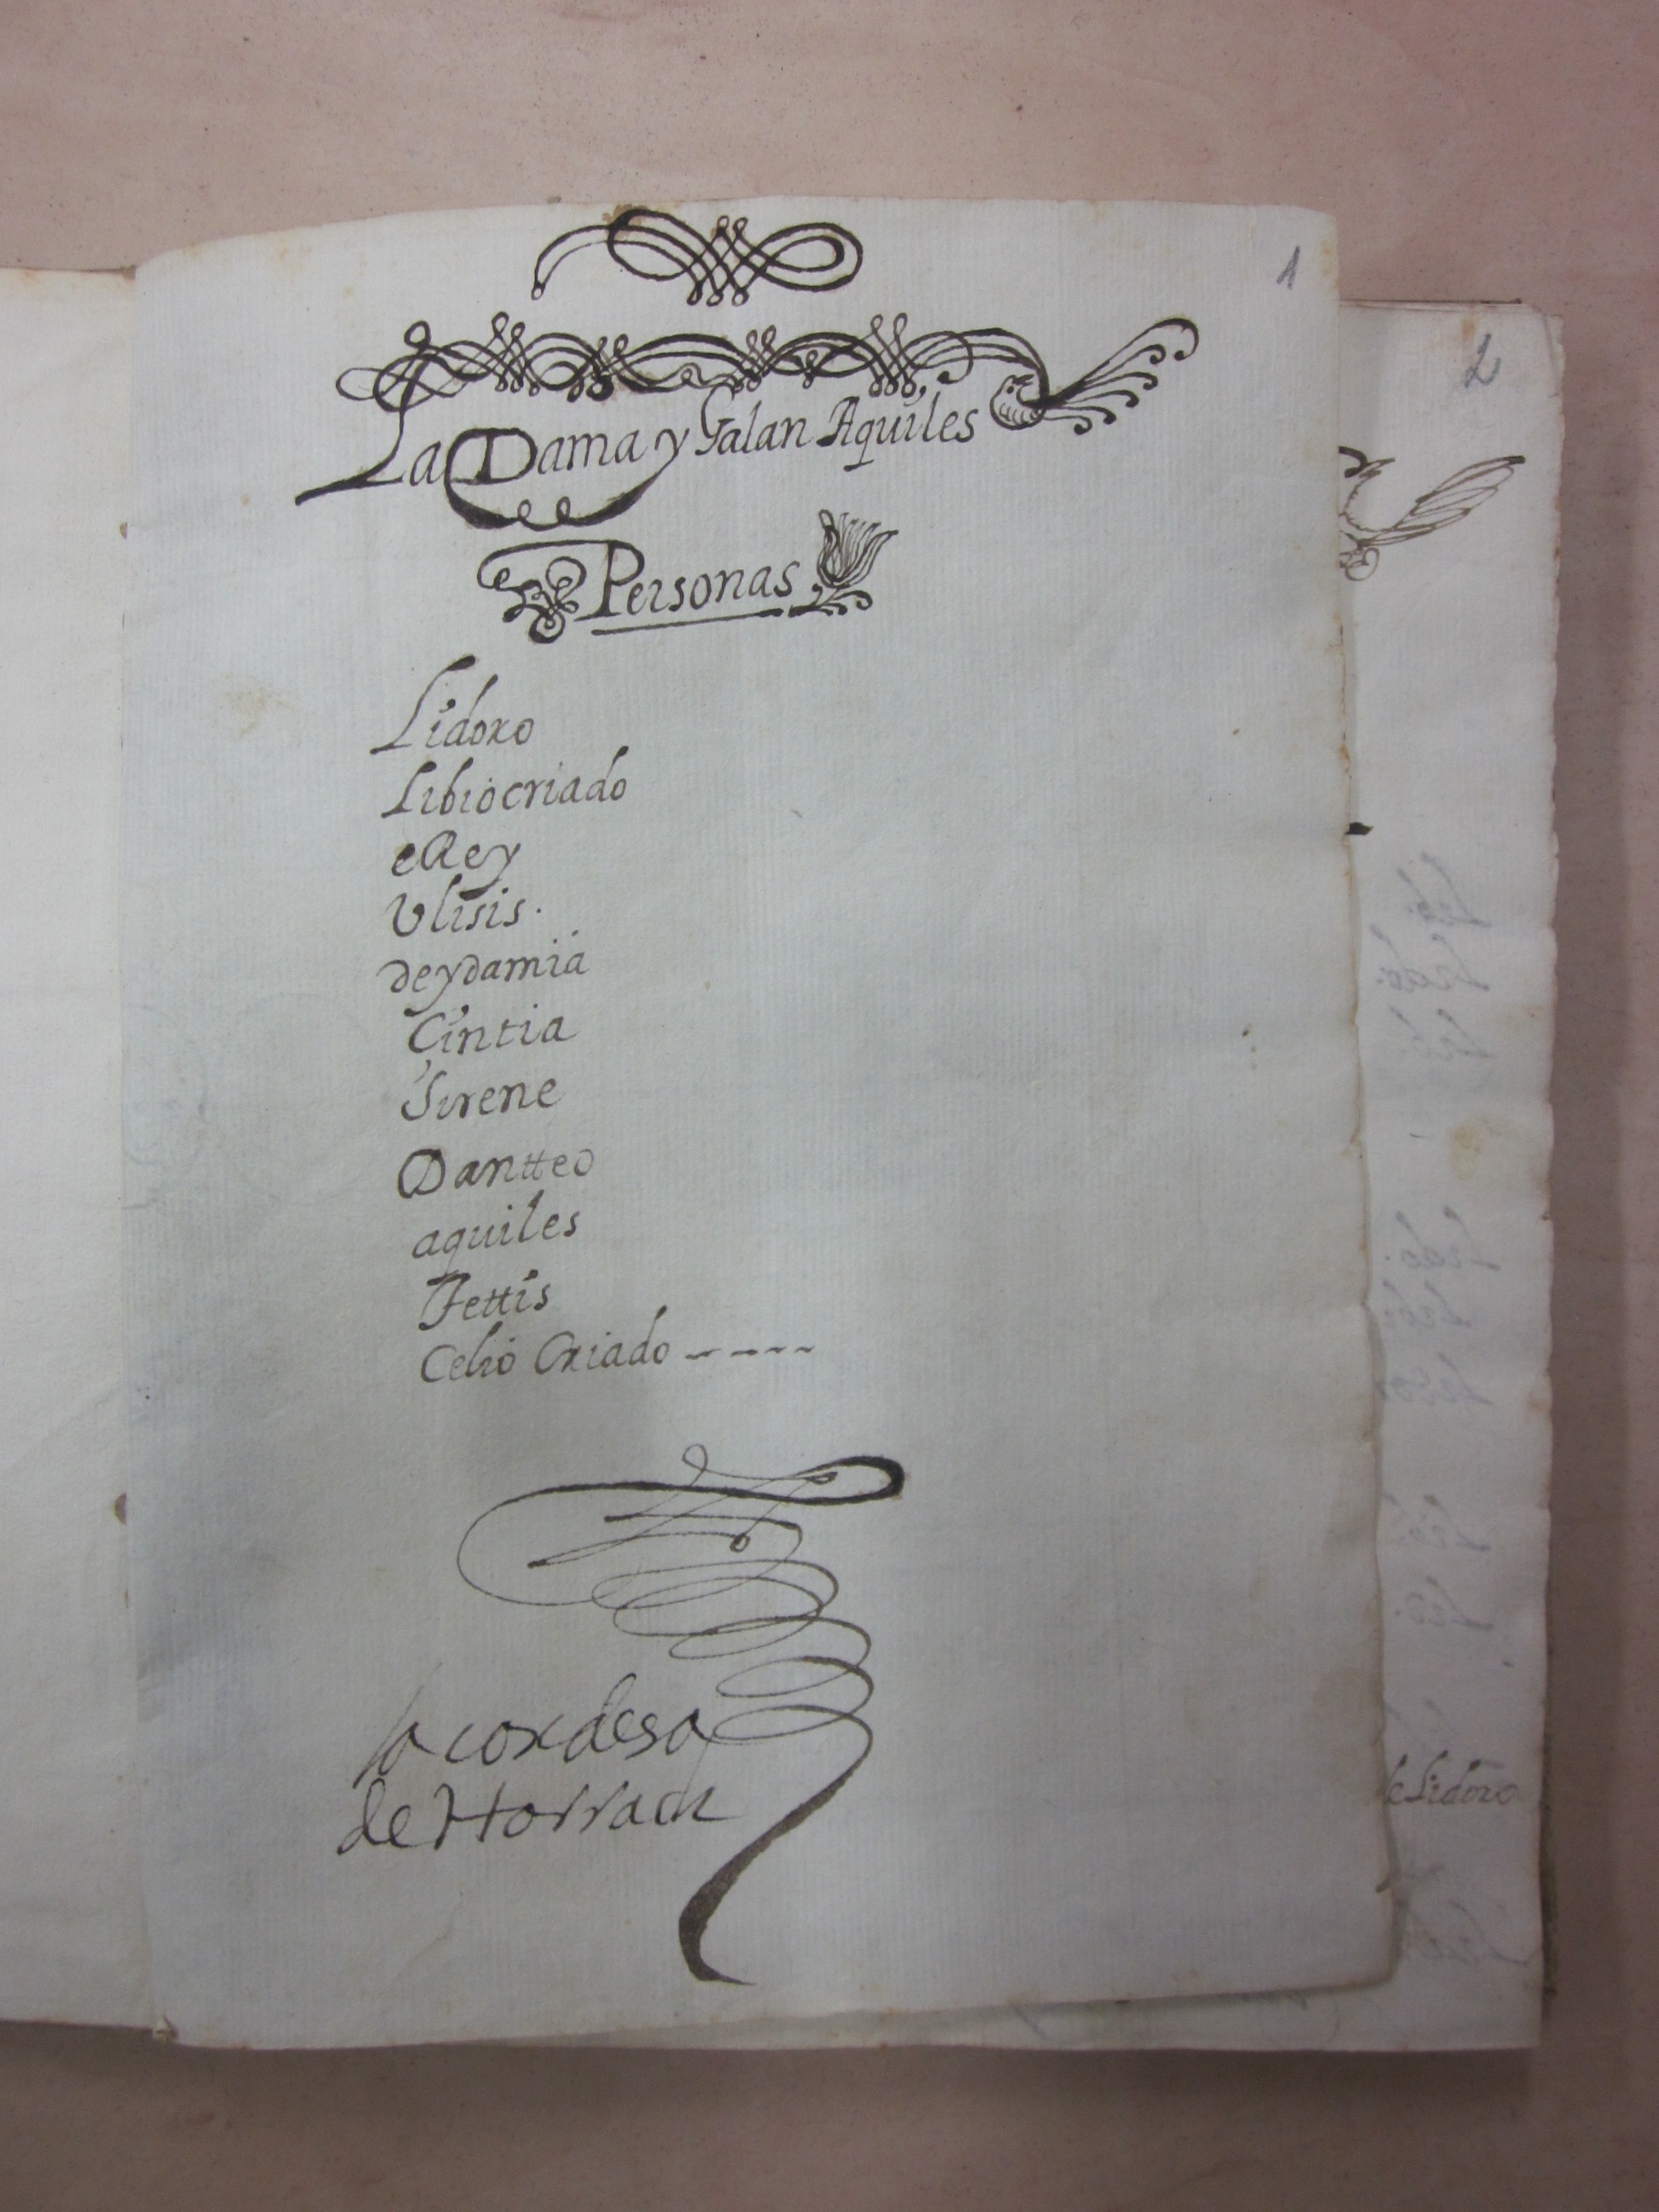 1
La Dama y Galan Aquiles
Personas
Lidoro
Libio criado
el Rey
Ulisis.
deydamia
Cintia
Sirene
Dantteo
aquiles
Tettis
Celio Criado ----
la condesa
de Horrach
2
de Lidoro